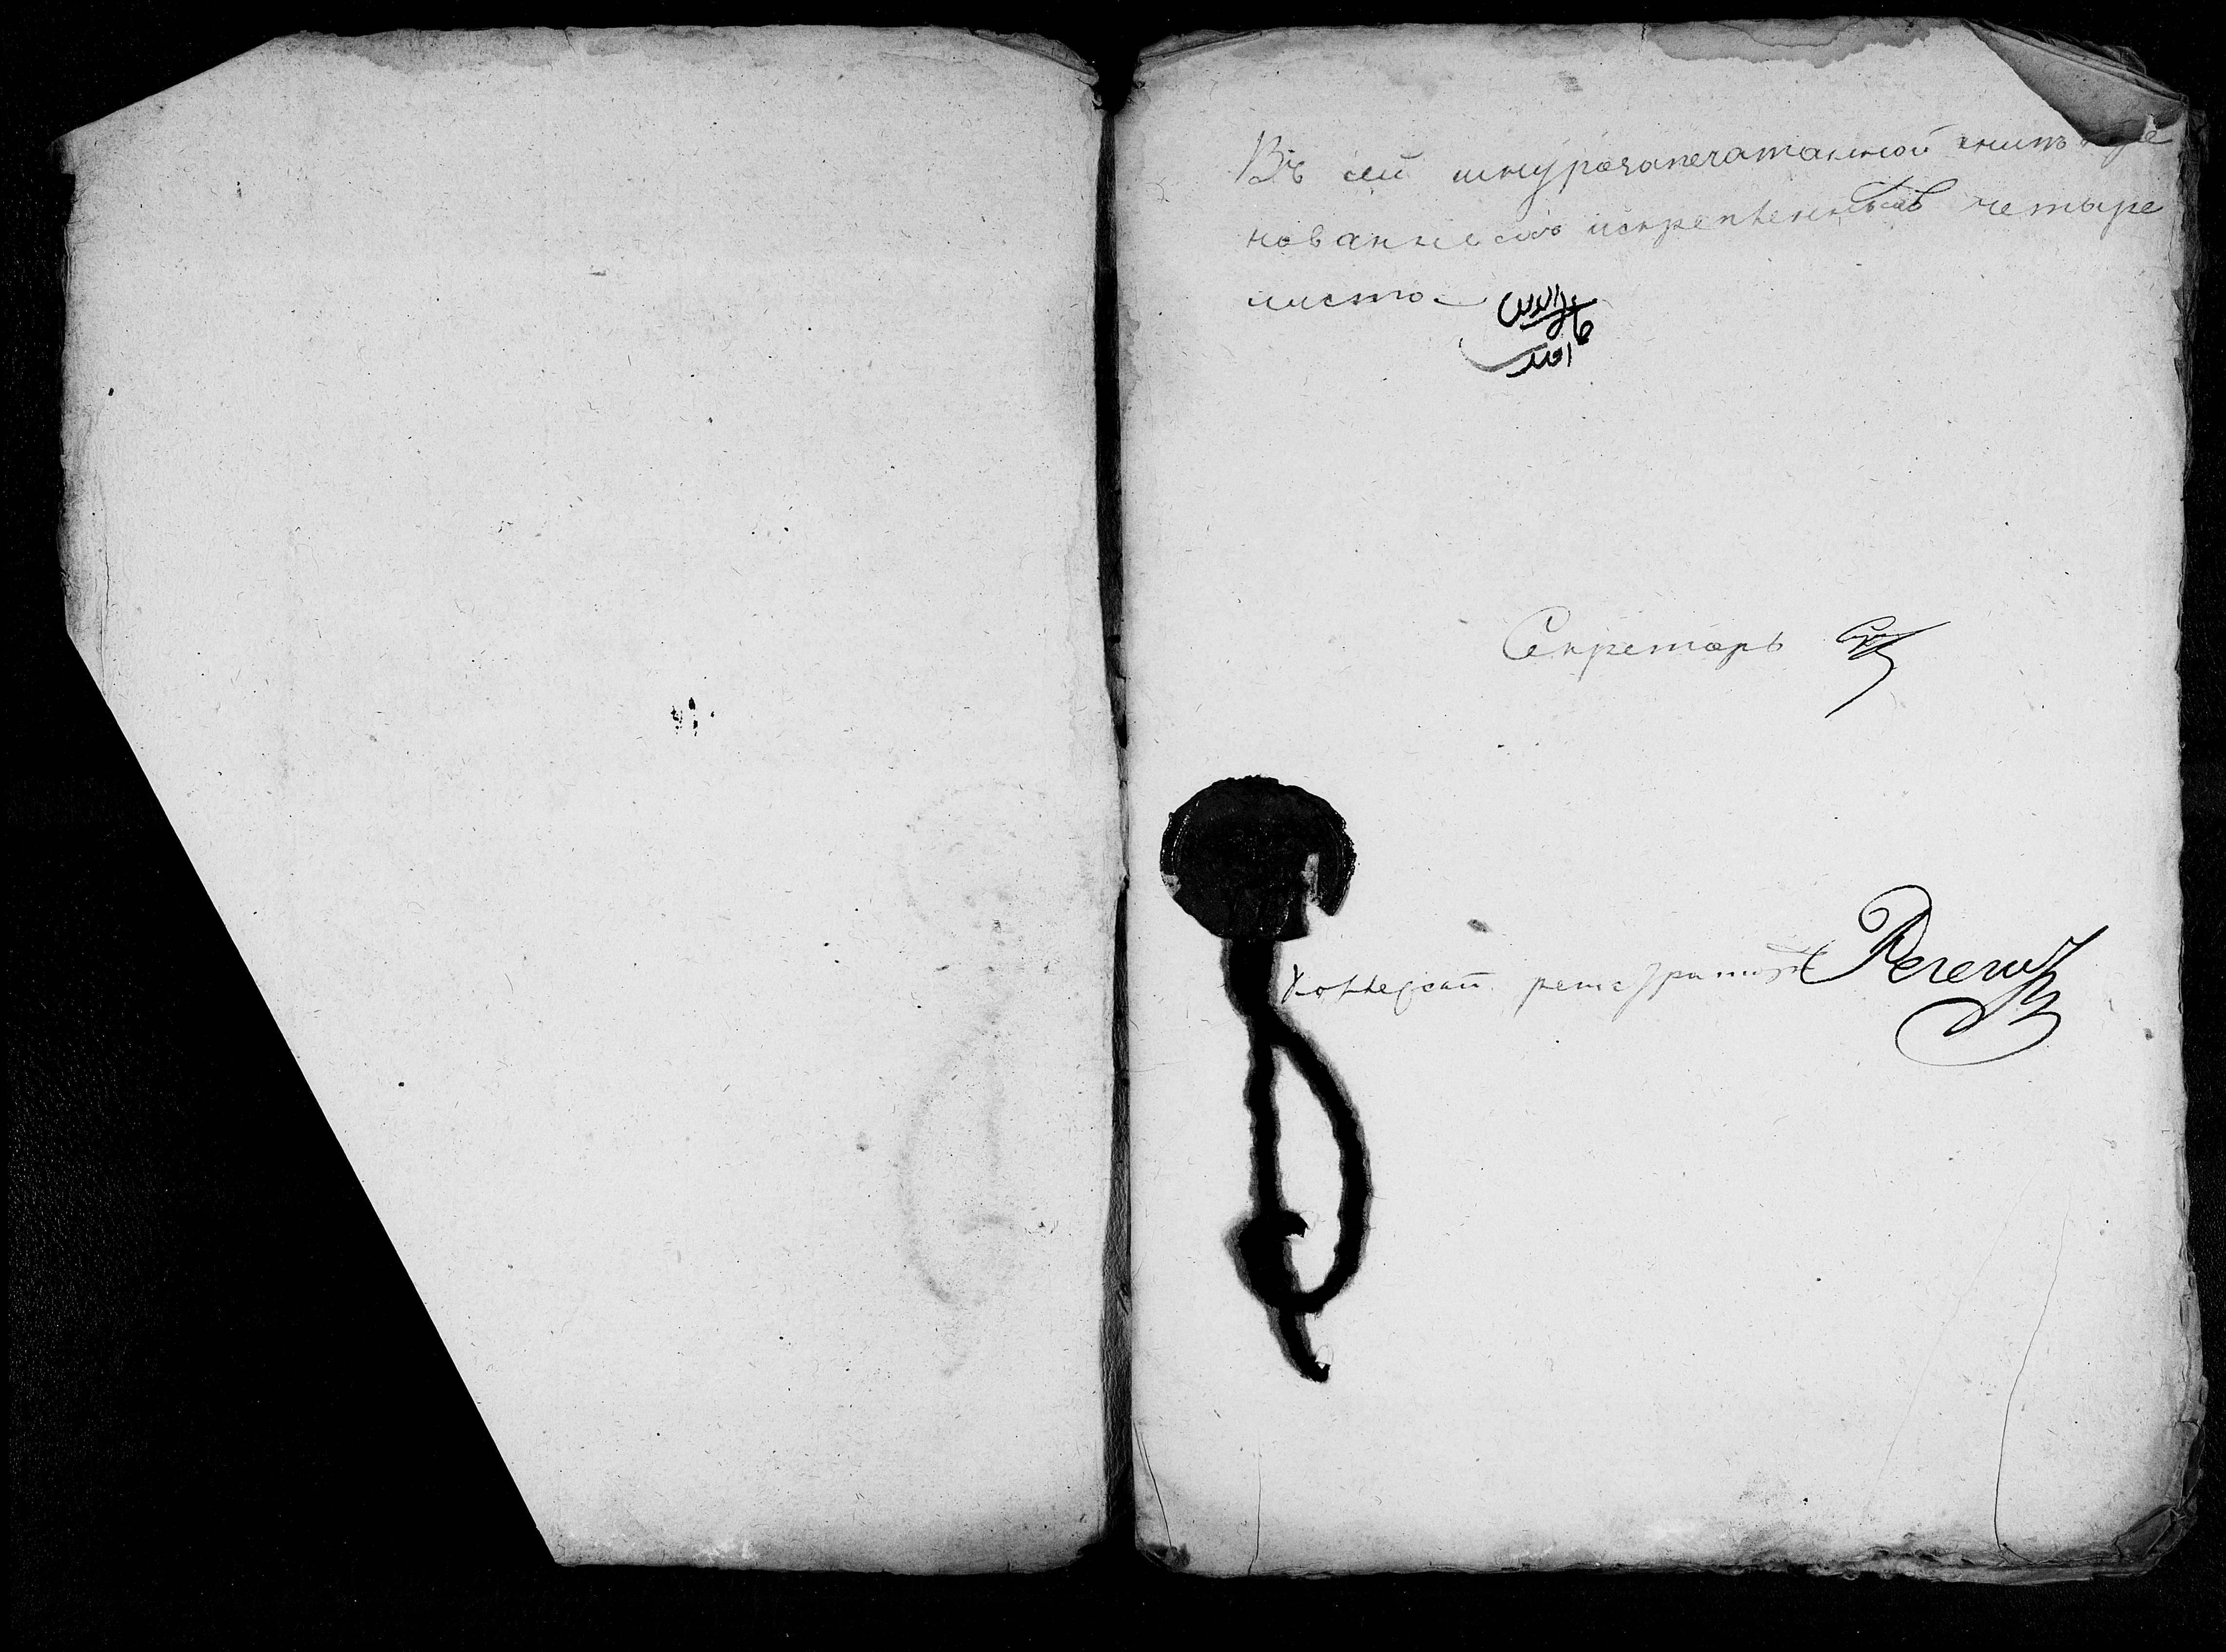 Въ сей шнурозапечатанной книгѣ
нованныхъ искрепленныхъ четыре
листа
Секретарь
Коллежскій регистраторъ